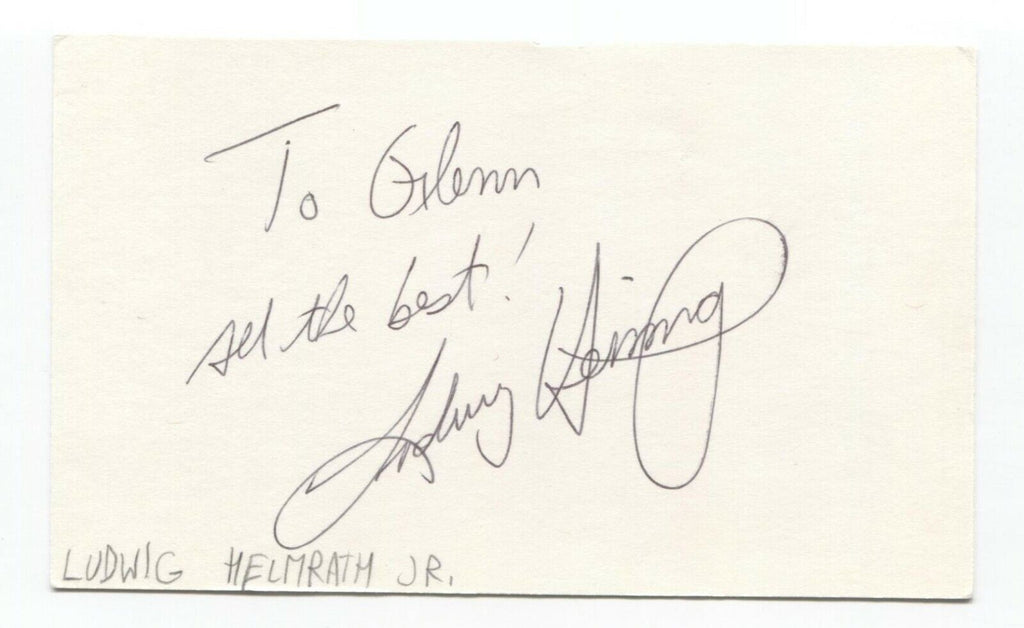 To Glenn
all the best!
LUDWIG HELMRATH JR.